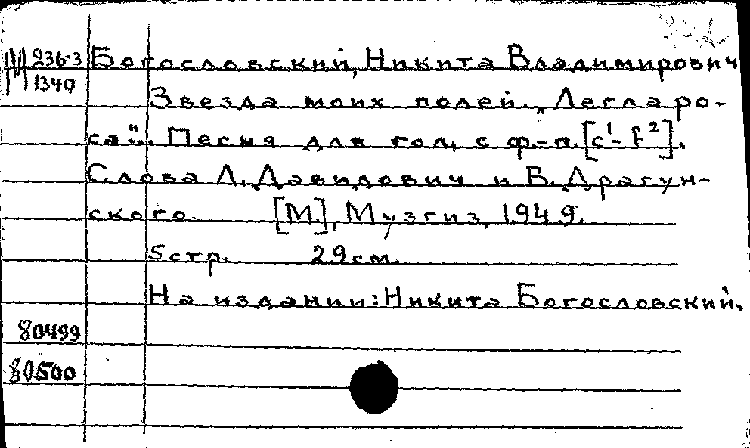 М 236-3 Богословский, Никита Владимирович
1340
Звезда моих полей. „Легла ро-
са"... Песня для гол. с ф-п. [c¹-f²].
Слова Л. Давидович и В. Драгун-
ского. [М], Музгиз, 1949.
5 стр. 29 см.
На издании: Никита Богословский.
80499
80500